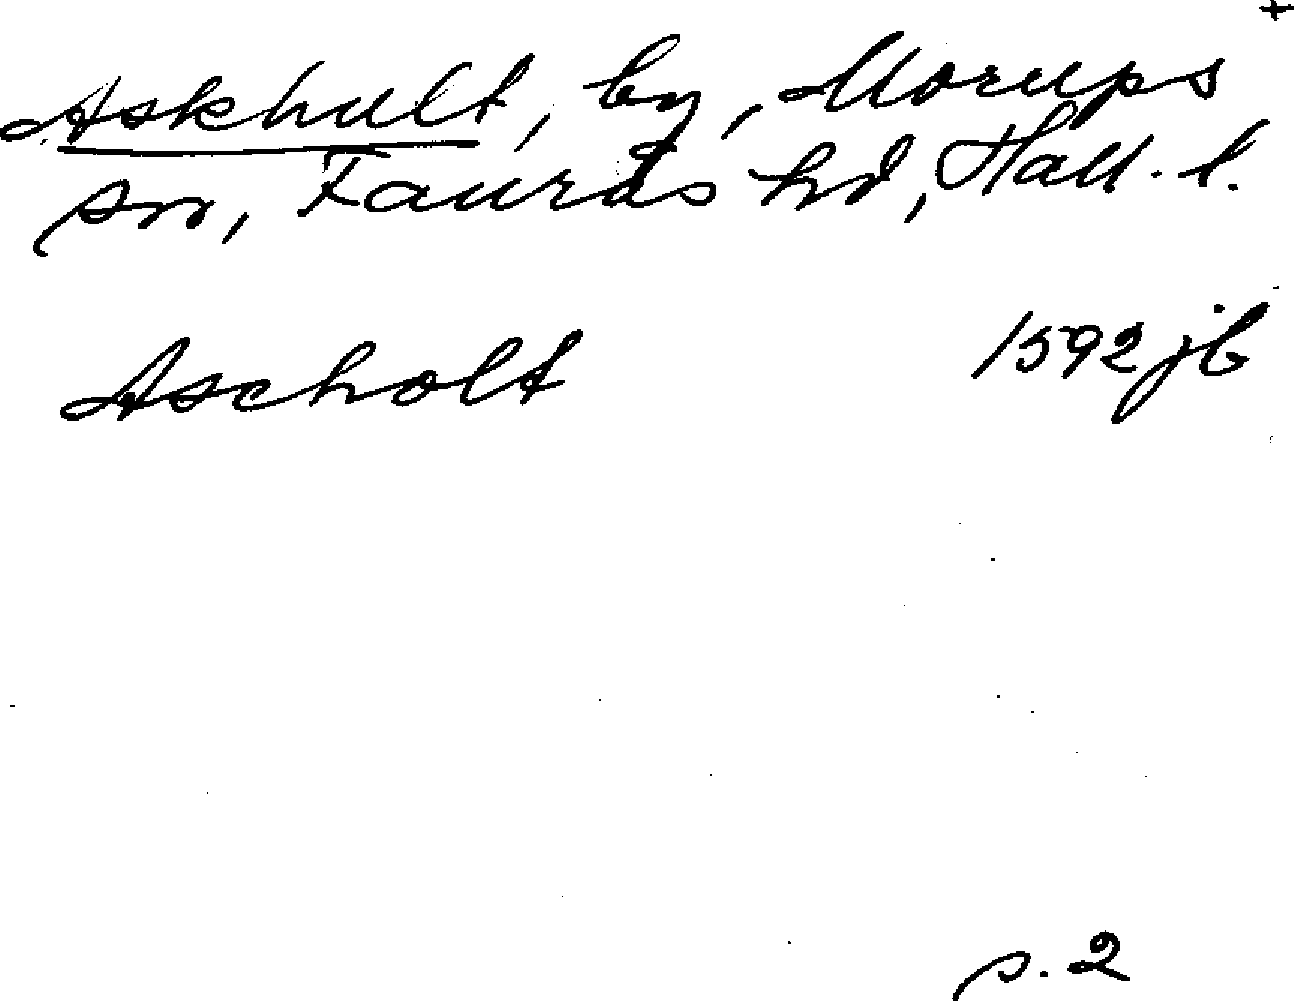 +
Askhult, by, Morups
sn, Faurås hd, Hall. l.
Ascholt 1592 jb
s. 2